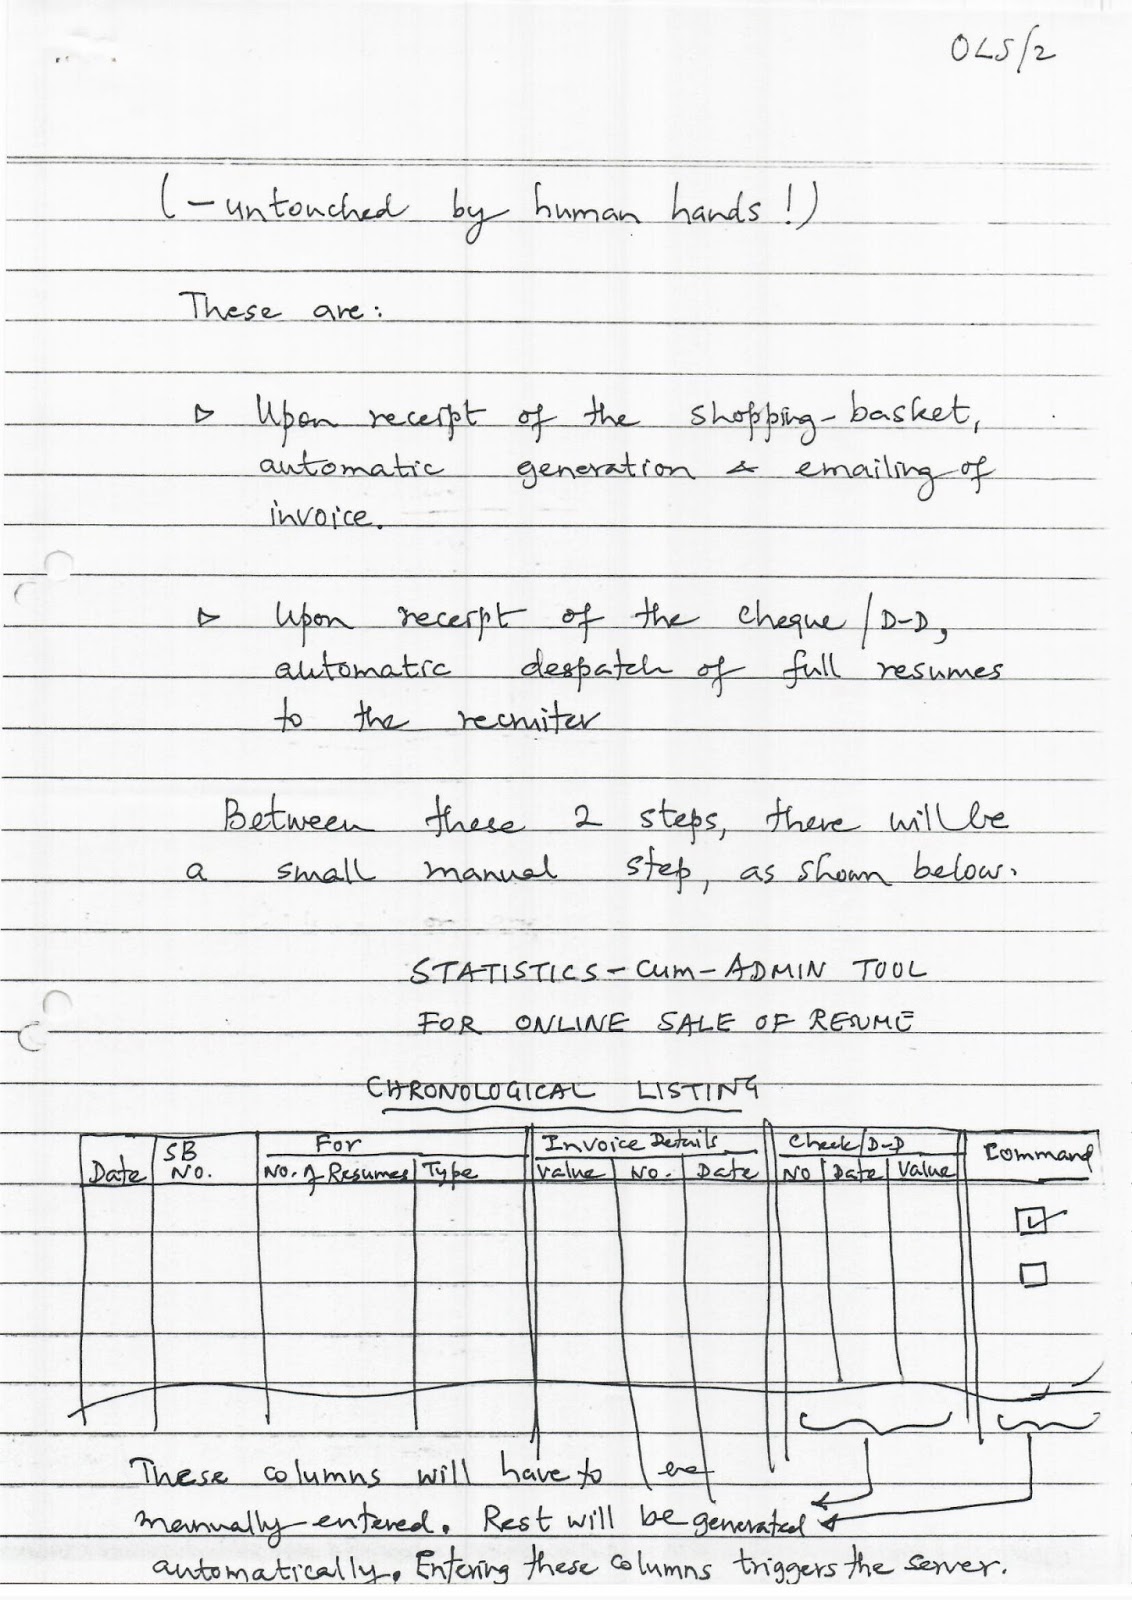 OLS/2
(- untouched by human hands!)
These are:
▷ Upon receipt of the shopping-basket,
automatic generation & emailing of
invoice.
▷ Upon receipt of the cheque/D-D,
automatic despatch of full resumes
to the recruiter
Between these 2 steps, there will be
a small manual step, as shown below.
STATISTICS-CUM-ADMIN TOOL
FOR ONLINE SALE OF RESUME
CHRONOLOGICAL LISTING
Date SB No. For Invoice Details Check/D-D Command
No. of Resumes Type Value No. Date No Date Value
These columns will have to be
manually entered. Rest will be generated
automatically. Entering these columns triggers the server.